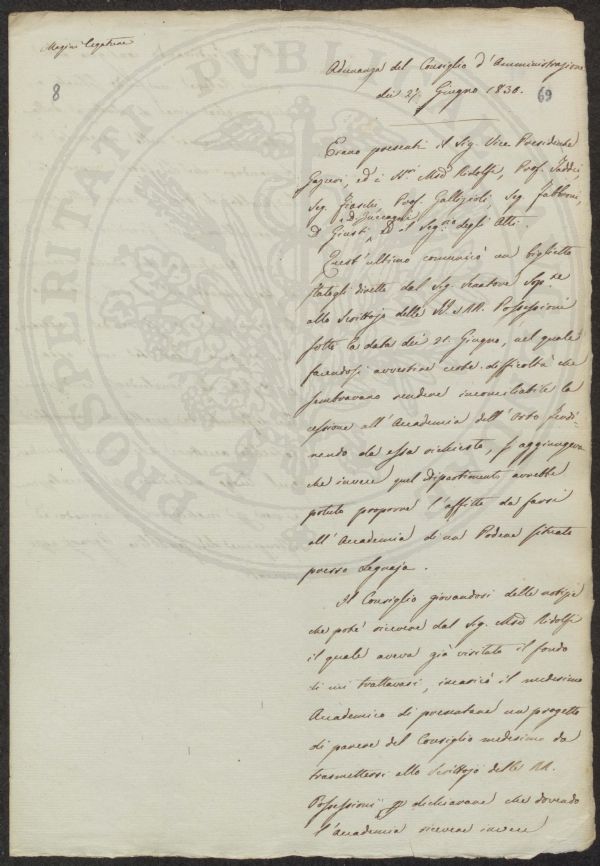 8
69
Adunanza del Consiglio d'Amministrazione
dei 27 Giugno 1830.
Erano presenti il Sig. Vice Presidente
Gazzeri, ed i SS.ri Ridolfi, Prof. Taddei
Sig. Prof. Gallizioli, Sig. Fabbroni,
D. Giusti, ed il Seg.rio degli Atti.
Quest'ultimo comunicò un biglietto
statogli diretto dal Sig. Senatore Sop.te
allo Scrittojo delle II. e RR. Possessioni
sotto la data dei 21. Giugno, nel quale
facendosi avvertire certe difficoltà che
sembravano rendere inconciliabile la
cessione all'Accademia dell'Orto
da essa richiesto, si aggiungeva
che invece quel dipartimento avrebbe
potuto proporre l'affitto da farsi
all'Accademia di un Podere situato
presso Legnaja.
Il Consiglio giovandosi delle notizie
che poté ricevere dal Sig. Ridolfi
il quale aveva già visitato il fondo
di cui trattavasi, incaricò il medesimo
Accademico di presentare un progetto
di parere del Consiglio medesimo da
trasmettersi allo Scrittojo delle RR.
Possessioni dichiarare che dovendo
l'Accademia ricevere invece
PROSPERITATI PVBLICAE